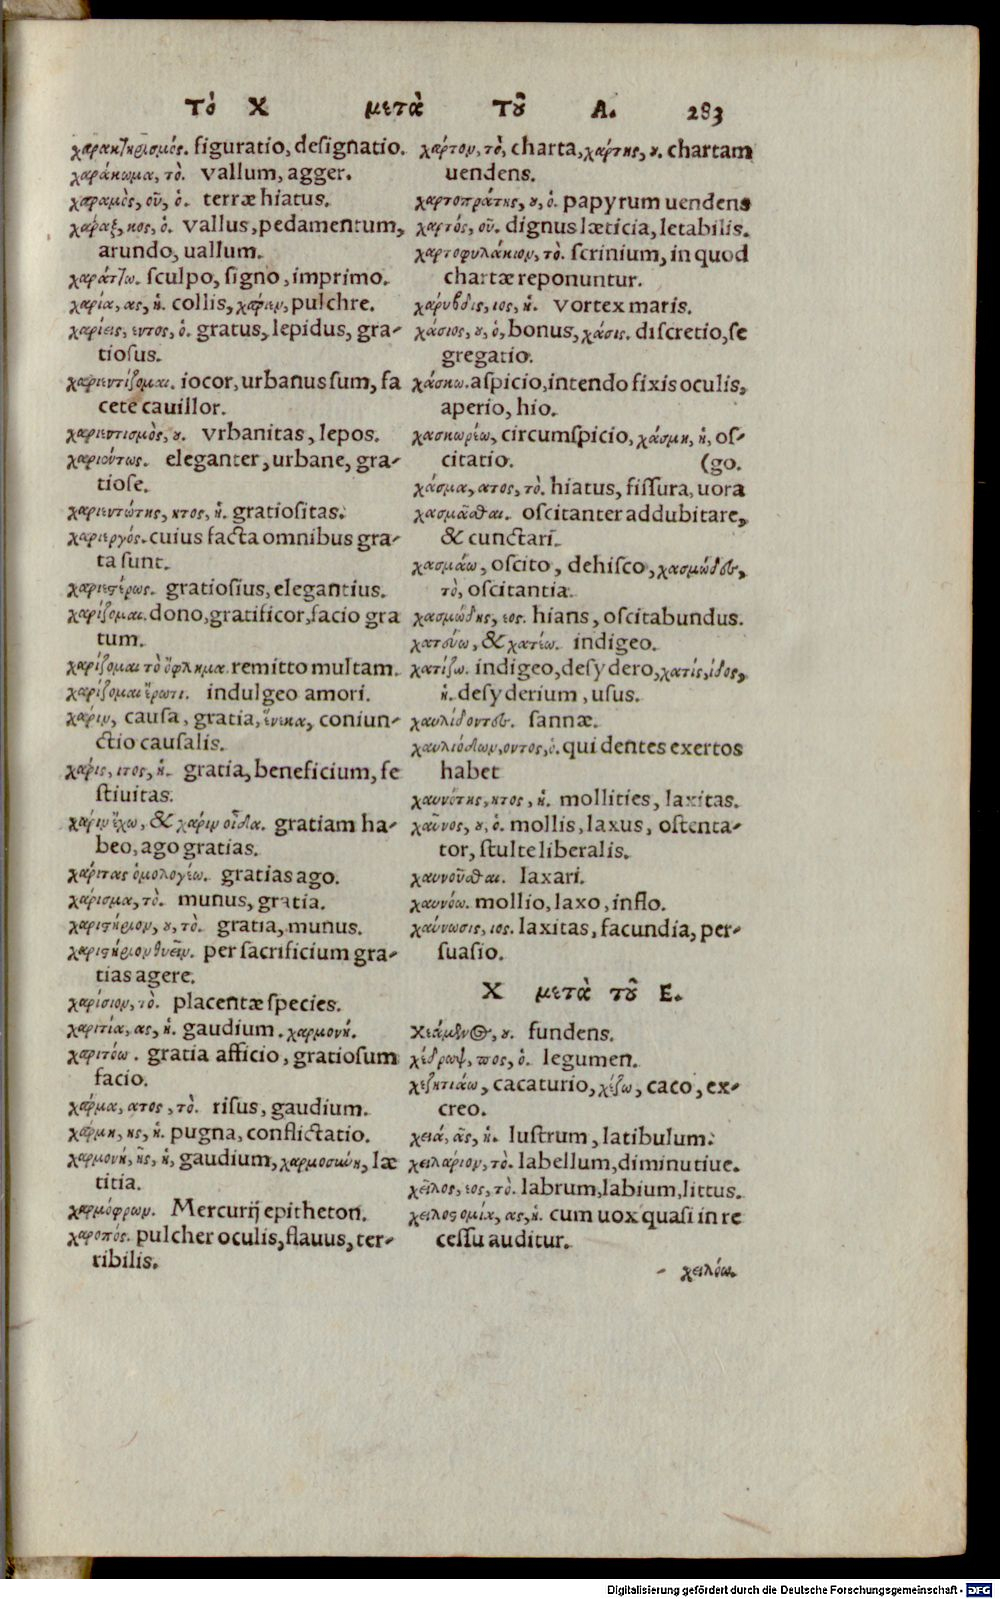 Τὸ Χ μετὰ Τοῦ Α. 283
χαρακτηρισμός. figuratio, designatio.
χαράκωμα, τὸ. vallum, agger.
χαραμὸς, οῦ, ὁ. terræ hiatus.
χάραξ, κος, ὁ. vallus, pedamentum,
arundo, uallum.
χαράτζω. sculpo, signo, imprimo.
χαρία, ας, ἡ. collis, χάριεν, pulchre.
χαρίεις, εντος, ὁ. gratus, lepidus, gra-
tiosus.
χαριεντίζομαι. iocor, urbanus sum, fa
cete cauillor.
χαριεντισμὸς, ου. vrbanitas, lepos.
χαριούτως. eleganter, urbane, gra-
tiose.
χαριεντώτης, ητος, ἡ. gratiositas.
χαριεργός. cuius facta omnibus gra-
ta sunt.
χαριεστέρως. gratiosius, elegantius.
χαρίζομαι. dono, gratificor, facio gra
tum.
χαρίζομαι τὸ ὄφλημα. remitto multam.
χαρίζομαι ἔρωτι. indulgeo amori.
χάριν, causa, gratia, ἕνεκα, coniun-
ctio causalis.
χάρις, ιτος, ἡ. gratia, beneficium, fe
stiuitas.
χάριν ἔχω, & χάριν οἶδα. gratiam ha-
beo, ago gratias.
χάριτας ὁμολογέω. gratias ago.
χάρισμα, τὸ. munus, gratia.
χαριστήριον, ου, τὸ. gratia, munus.
χαριστήριον θυεῖν. per sacrificium gra-
tias agere.
χαρίσιον, τὸ. placentæ species.
χαριτία, ας, ἡ. gaudium. χαρμονή.
χαριτόω. gratia afficio, gratiosum
facio.
χάρμα, ατος, τὸ. risus, gaudium.
χάρμη, ης, ἡ. pugna, conflictatio.
χαρμονή, ῆς, ἡ, gaudium, χαρμοσύνη, læ
titia.
χαρμόφρων. Mercurij epitheton.
χαροπός. pulcher oculis, flauus, ter-
ribilis.
χάρτον, τὸ, charta, χάρτης, ου. chartam
uendens.
χαρτοπράτης, ου, ὁ. papyrum uendens
χαρτός, οῦ. dignus læticia, letabilis.
χαρτοφυλάκιον, τὸ. scrinium, in quod
chartæ reponuntur.
χάρυβδις, ιος, ἡ. vortex maris.
χάσιος, ου, ὁ, bonus, χάσις. discretio, se
gregatio.
χάσκω. aspicio, intendo fixis oculis,
aperio, hio.
χασκωρέω, circumspicio, χάσμη, ἡ, os-
citatio. (go.
χάσμα, ατος, τὸ. hiatus, fissura, uora
χασμᾶσθαι. oscitanter addubitare,
& cunctari.
χασμάω, oscito, dehisco, χασμῶδες,
τὸ, oscitantia.
χασμώδης, εος. hians, oscitabundus.
χατεύω, & χατέω. indigeo.
χατίζω. indigeo, desydero, χατίς, ίδος,
ἡ. desyderium, usus.
χαυλίδοντες. sannæ.
χαυλιόδων, οντος, ὁ. qui dentes exertos
habet
χαυνότης, ητος, ἡ. mollities, laxitas.
χαῦνος, ου, ὁ. mollis, laxus, ostenta-
tor, stulte liberalis.
χαυνοῦσθαι. laxari.
χαυνόω. mollio, laxo, inflo.
χαύνωσις, ιος. laxitas, facundia, per-
suasio.
Χ μετὰ τοῦ Ε.
Χεάμενος, ου. fundens.
χέδρωψ, πος, ὁ. legumen.
χεζητιάω, cacaturio, χέζω, caco, ex-
creo.
χειά, ᾶς, ἡ. lustrum, latibulum.
χειλάριον, τὸ. labellum, diminutiue.
χεῖλος, εος, τὸ. labrum, labium, littus.
χειλοστομία, ας, ἡ. cum uox quasi in re
cessu auditur.
χειλόω.
Digitalisierung gefördert durch die Deutsche Forschungsgemeinschaft - DFG